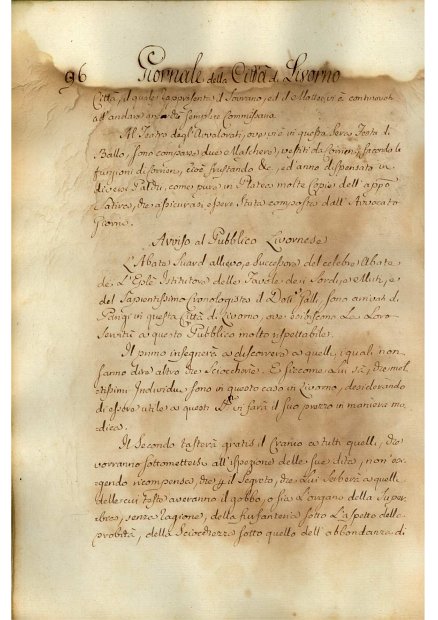 96 Giornale della Città di Livorno
Città, il quale rappresenta il Sovrano, ed il
all'andare in semplice Commissaria.
Al Teatro degli Avvalorati, ove vi è in questa sera Festa di
Ballo, sono comparse due Maschere, vestite da secondo le
funzioni di cioè frustando &c, ed anno dispensato in
diversi Palchi, come pure in Platea molte Copie dell'
Satira, che assicurasi essere stata composta dall'Avvocato
Giorni.
Avviso al Pubblico Livornese
L'Abate Suard allievo, e successore del celebre Abate
de L'Epée Istitutore delle Tavole dei Sordi, e Muti, e
del Sapientissimo Cronologista il Dott. Gall, sono arrivati di
Parigi in questa Città di Livorno, ove le Loro
Servitù a questo Pubblico molto rispettabile.
Il primo insegnerà a discorrere a quelli, i quali non
sanno dire altro che Sciocchezze. E siccome Lui sà, che mol-
tissimi Individui sono in questo caso in Livorno, desiderando
di essere utile a questi Sri farà il suo prezzo in maniera mo-
dica.
Il Secondo tasterà gratis il Cranio a tutti quelli, che
vorranno sottomettersi all'ispezione delle sue dita, non esi-
gendo ricompensa, che il Segreto, che Lui serberà a quelli
delle cui teste averanno il gobbo, o sia L'organo della Super-
bia, senza ragione, della furfanteria sotto L'aspetto della
probità, della Sciocchezza sotto quella dell'abbondanza di